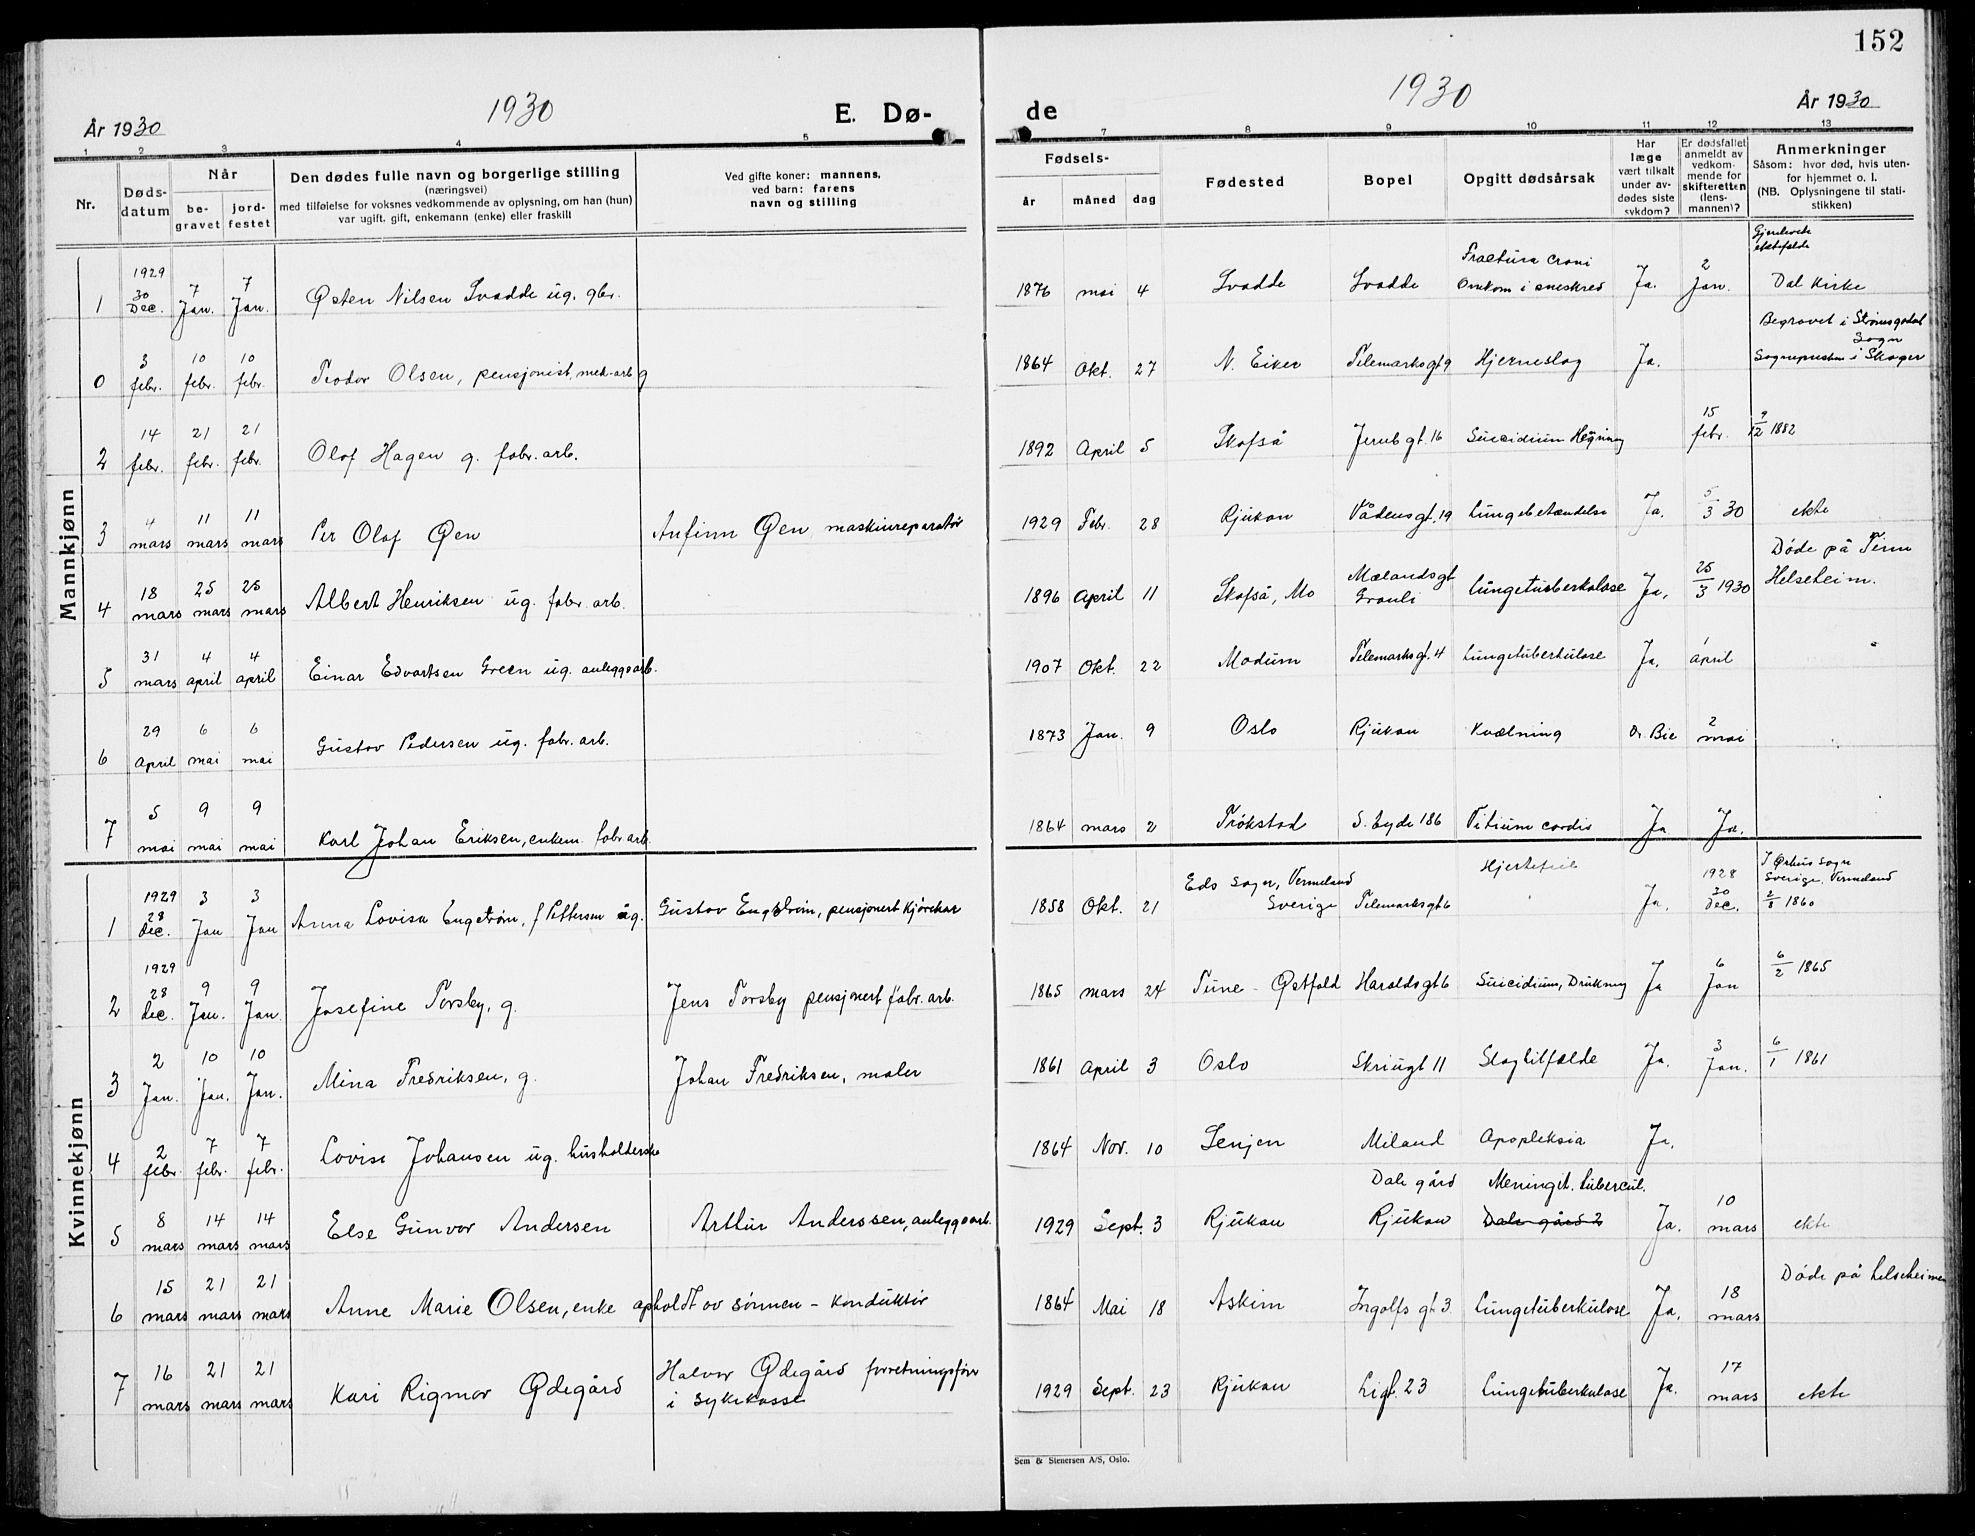 152
År 1930
1930
E. Dø-
de
1930
År 1930
1 2 3 4 5 7 8 9 10 11 12 13
Nr.
Døds-
datum
Når
be-
gravet
jord-
festet
Den dødes fulle navn og borgerlige stilling
(næringsvei)
med tilføielse for voksnes vedkommende av oplysning, om han (hun)
var ugift, gift, enkemann (enke) eller fraskilt
Ved gifte koner: mannens,
ved barn: farens
navn og stilling
Fødsels-
år måned dag
Fødested
Bopel
Opgitt dødsårsak
Har
læge
vært tilkalt
under av-
dødes siste
sykdom?
Er dødsfallet
anmeldt av
vedkom-
mende for
skifteretten
(lens-
mannen)?
Anmerkninger
Såsom: hvor død, hvis uten-
for hjemmet o. l.
(NB. Oplysningene til stati-
stikken)
Mannkjønn
1 1929 30 Dec. 7 Jan. 7 Jan. Østen Nilsen Svadde ug. gbr. 1876 mai 4 Svadde Svadde Fractura crani Omkom i sneskred Ja. 2 Jan. Dal Kirke
0 3 febr. 10 febr. 10 febr. Teodor Olsen, pensjonist, mek-arb g 1864 Okt. 27 N. Eiker Telemarksgt 9 Hjerneslag Ja. Begravet i Strømsgodset Sogn Sognepresten i Skoger
2 14 febr. 21 febr. 21 febr. Olaf Hagen g. fabr. arb. 1892 April 5 Skafså Jernbgt. 16 Suicidium Hegning 15 febr. 9/12 1882
3 4 mars 11 mars 11 mars Per Olaf Øen Anfinn Øen maskinreparatør 1929 Febr. 28 Rjukan Vådensgt. 19 Lungebetændelse Ja. 5/3 30 ekte
4 18 mars 25 mars 25 mars Albert Henriksen ug. fabr. arb. 1896 April 11 Skafså, Mo Mælandsgt Grauli Lungetuberkulose Ja. 25/3 1930 Døde på Tinn Helseheim.
5 31 mars 4 april 4 april Einar Edvartsen Green ug. anleggsarb. 1907 Okt. 22 Modum Telemarksgt. 4 Lungetuberkulose Ja. 1 april
6 29 April 6 mai 6 mai Gustav Pedersen ug. fabr. arb. 1873 Jan. 9 Oslo Rjukan Kvælning Dr. Bie 2 mai
7 5 mai 9 mai 9 mai Karl Johan Eriksen, enkem. fabr arb. 1864 mars 2 Trøkstad S. Eyde 186 Vitium cordis Ja Ja.
Kvinnekjønn
1 1929 28 dec. 3 Jan 3 Jan Anna Lovisa Engstrøm, f Pettersen ug. Gustav Engstrøm, pensjonert kjørekar 1858 Okt. 21 Eds sogn, Vermeland Sverige Telemarksgt 6 Hjertefeil Ja. 1928 30 Dec. Sverige, Vermeland 2/8 1860
2 1929 28 dec. 9 Jan. 9 Jan. Josefine Torsby, g. Jens Torsby pensjonert fabr. arb. 1865 mars 24 Tune - Østfold Haraldsgt 6 Suicidium, Drukning Ja 6 Jan 6/2 1865
3 2 Jan. 10 Jan. 10 Jan. Mina Fredriksen, g. Johan Fredriksen, maler 1861 April 3 Oslo Skriugt 11 Slagtilfælde Ja. 3 Jan. 6/1 1861
4 2 febr. 7 febr. 7 febr. Lovise Johansen ug. husholderske 1864 Nov. 10 Senjen Miland Apopleksia Ja.
5 8 mars 14 mars 14 mars Else Gunvor Andersen Arthur Anderssen, anleggsarb. 1929 Sept. 3 Rjukan Dale gård Rjukan Meningit. tubercul. Dale gård 2 Ja. 10 mars ekte
6 15 mars 21 mars 21 mars Anne Marie Olsen, enke opholdt av sønnen - konduktør 1864 Mai 18 Askim Ingolfs gt. 3 Lungetuberkulose Ja. 18 mars Døde på helseheimen
7 16 mars 21 mars 21 mars Kari Rigmor Ødegård Halvor Ødegård forretningsfører i sykekasse 1929 Sept. 23 Rjukan Ligt. 23 Lungetuberkulose Ja. 17 mars ekte
Sem & Stenersen A/S, Oslo.